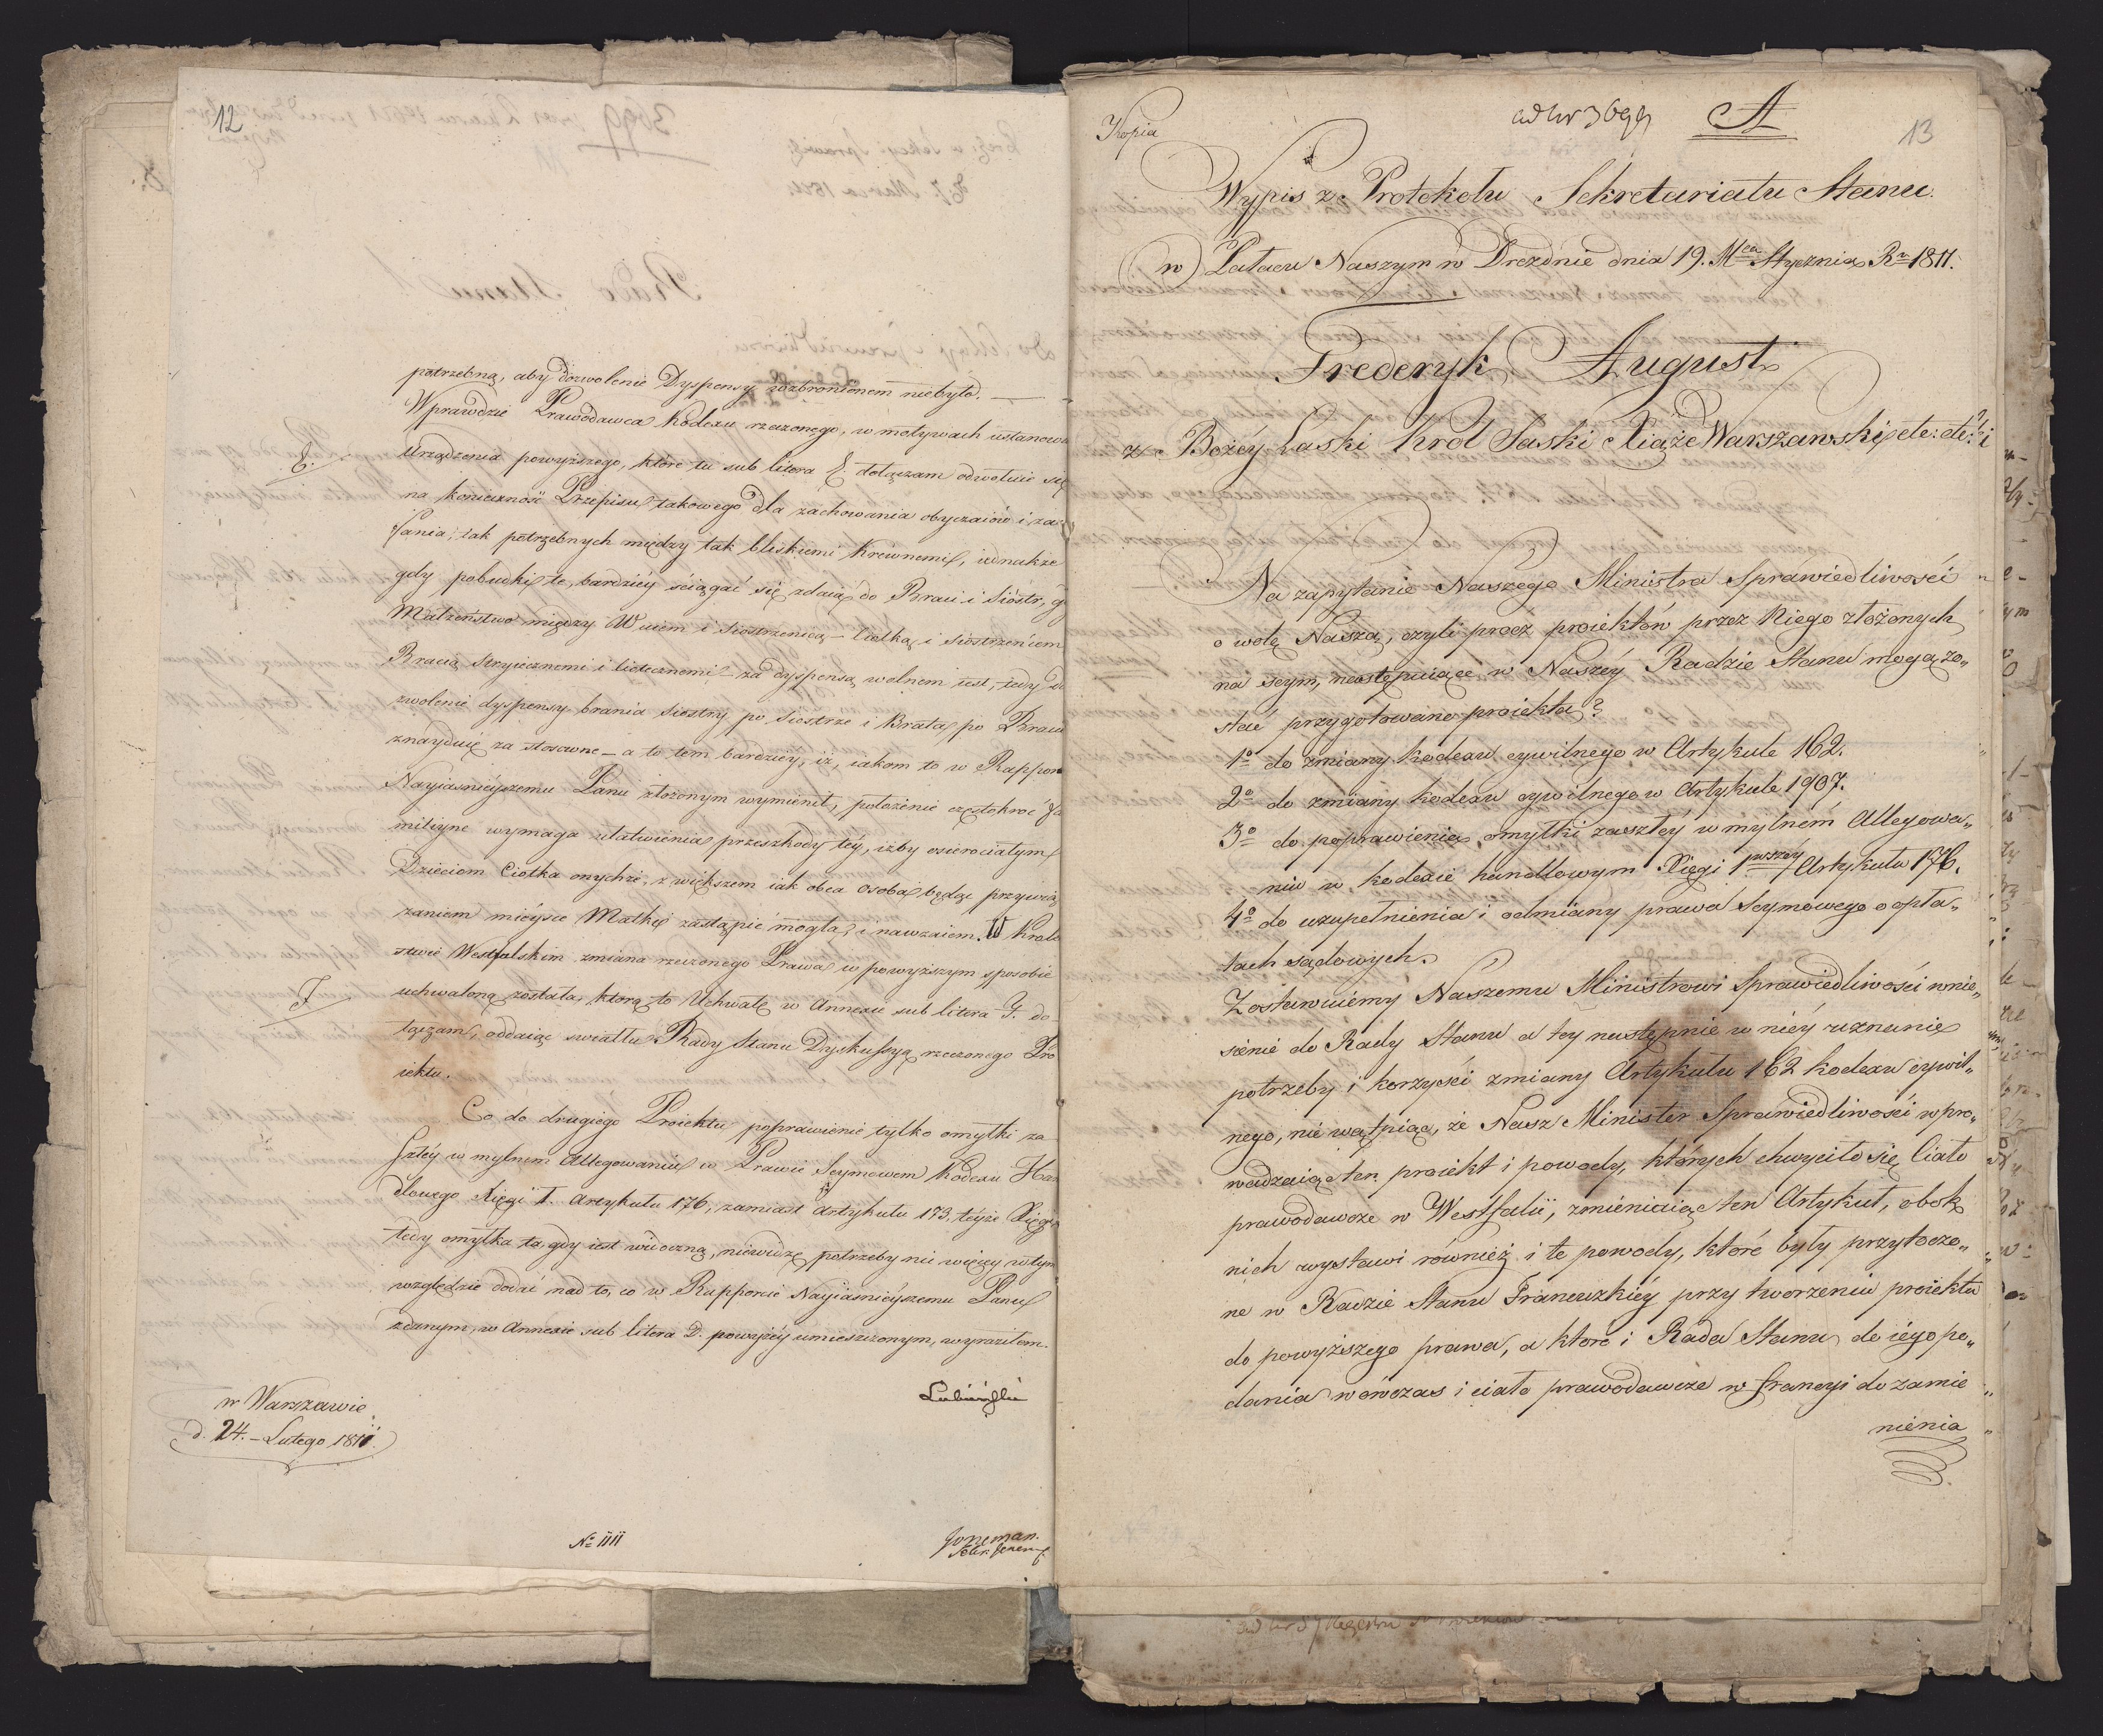 12
potrzebną, aby dozwolenie Dyspensy wzbronionem niebyło. —
Wprawdzie Prawodawca Kodexu rzeczonego, w motywach ustanowi
E. urządzenia powyższego, które tu sub litera E. dołączam odwołuie się
na konieczność Przepisu takowego dla zachowania obyczaiów i za
fania, tak potrzebnych między tak bliskiemi Krewnemi, iednakże
gdy pobudki te, bardziéy ściągać się zdaią do Braci i Sióstr, g
Małżeństwo między Wuiem i Siostrzenicą – Ciotką i Siostrzeńcem
Bracią Stryiecznemi i ciotecznemi – za dyspensą wolnem iest, tedy do
zwolenie dyspensy brania Siostry po Siostrze i Brata po Bracie
znayduię za stosowne – a to tem bardziéy, iż, iakom to w Rappor
Nayiaśnieyszemu Panu złożonym wymienił, położenie częstokroć fa
miliyne wymaga ułatwienia przeszkody téy, iżby osierociałym
Dzieciom Ciotka onychże, z większem iak obca osoba będąc przywią
zaniem mieysce Matki zastąpić mogła, i nawzaiem. W Krole
stwie Westfalskim zmiana rzeczonego Prawa w powyższym sposobie
F uchwaloną została, którą to Uchwałę w Annexie sub litera F. do
łączam, oddaiąc światłu Rady Stanu Dyskussyą rzeczonego Pro
iektu.
Co do drugiego Proiektu poprawienie tylko omyłki za
szłéy w mylnem allegowaniu w Prawie Seymowem Kodexu Han
dlowego Xięgi I. Artykułu 176, zamiast Artykułu 173, téyże Xięgi
tedy omyłka ta, gdy iest widoczną, niewidzę potrzeby nic więcéy w tym
względzie dodać nad to, co w Rapporcie Nayiaśnieyszemu Panu
zdanym, w Annexie sub litera D. powyżéy umieszczonym, wyraziłem.
Łubieński
w Warszawie
d. 24. – Lutego 1811.
Joneman.
Sekr: Jener:
Kopia
ad Nr 3699
A
13
Wypis z Protokołu Sekretariatu Stanu.
w Pałacu Naszym w Dreznie dnia 19. Mca Stycznia Rr 1811.
Frederyk August
z Bożéy Łaski Król Saski Xiąże Warszawski, etc: etc:
Na zapytanie Naszego Ministra Sprawiedliwości
o wolę Naszą, czyli prócz proiektów przez Niego złożonych
na seym, następuiące w Naszéy Radzie Stanu mogą zo„
stać przygotowane proiekta?
1o do zmiany kodexu cywilnego w Artykule 162.
2o do zmiany kodexu cywilnego w Artykule 1907.
3o do poprawienia omyłki zaszłéy w mylném Allegowa„
niu w kodexie handlowym Xięgi 1wszéy Artykułu 176.
4o do uzupełnienia i odmiany prawa Seymowego o opła„
tach sądowych.
Zostawuiemy Naszemu Ministrowi Sprawiedliwości wnie„
sienie do Rady Stanu a tey następnie w niéy uznanie
potrzeby i korzyści zmiany Artykułu 162 kodexu cywil„
nego, nie wątpiąc, że Nasz Minister Sprawiedliwości wpro„
wadzaiąc ten proiekt i powody, których chwyciło się Ciało
prawodawcze w Westfalii, zmieniaiąc ten Artykuł, obok
nich wystawi również i te powody, które były przytoczo„
ne w Radzie Stanu Francuzkiéy przy tworzeniu proiektu
do powyższego prawa, a które i Rada Stanu do iego po„
dania wówczas i ciało prawodawcze w francyi do zamie
nienia